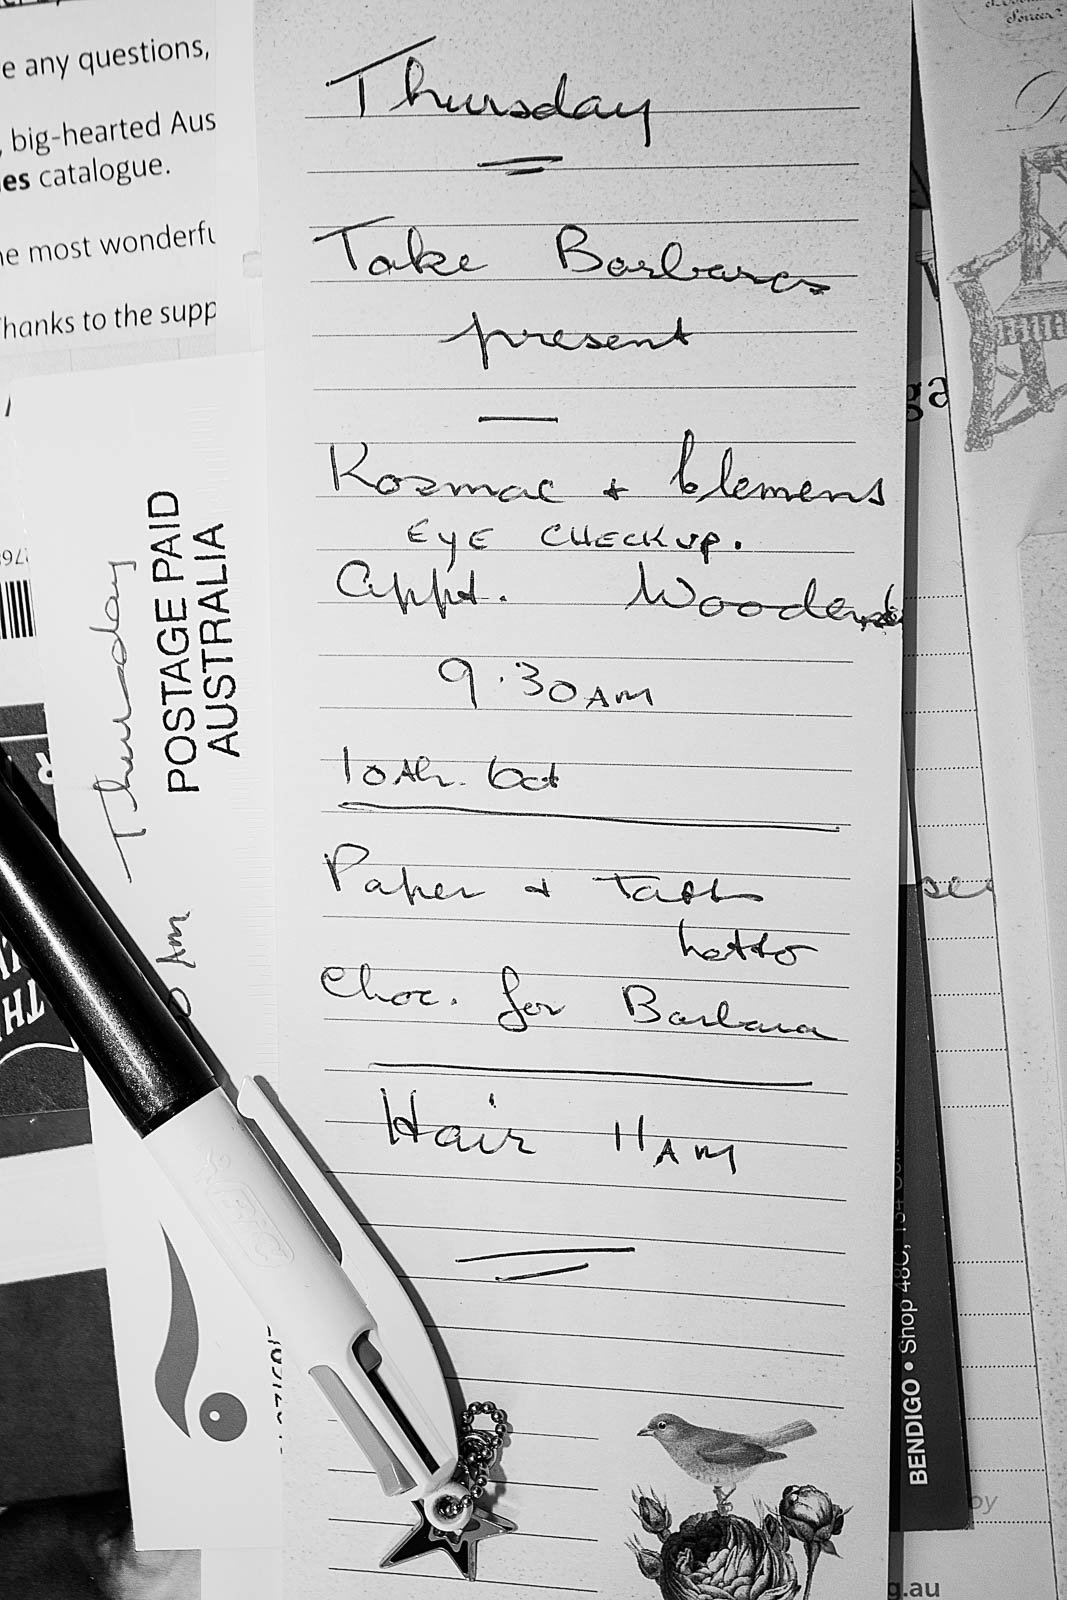 e any questions,
, big-hearted Aus
es catalogue.
he most wonderfu
Thanks to the supp
POSTAGE PAID
AUSTRALIA
Thursday
0 Am
Thursday
Take Barbaras
present
Kozmac + Clemens
EYE CHECKUP.
Appt. Woodend
9.30 AM
10th. Oct
Paper + Tatts
hotto
Choc. for Barbara
Hair 11 AM
BIC
BENDIGO • Shop 48C, 134
g.au